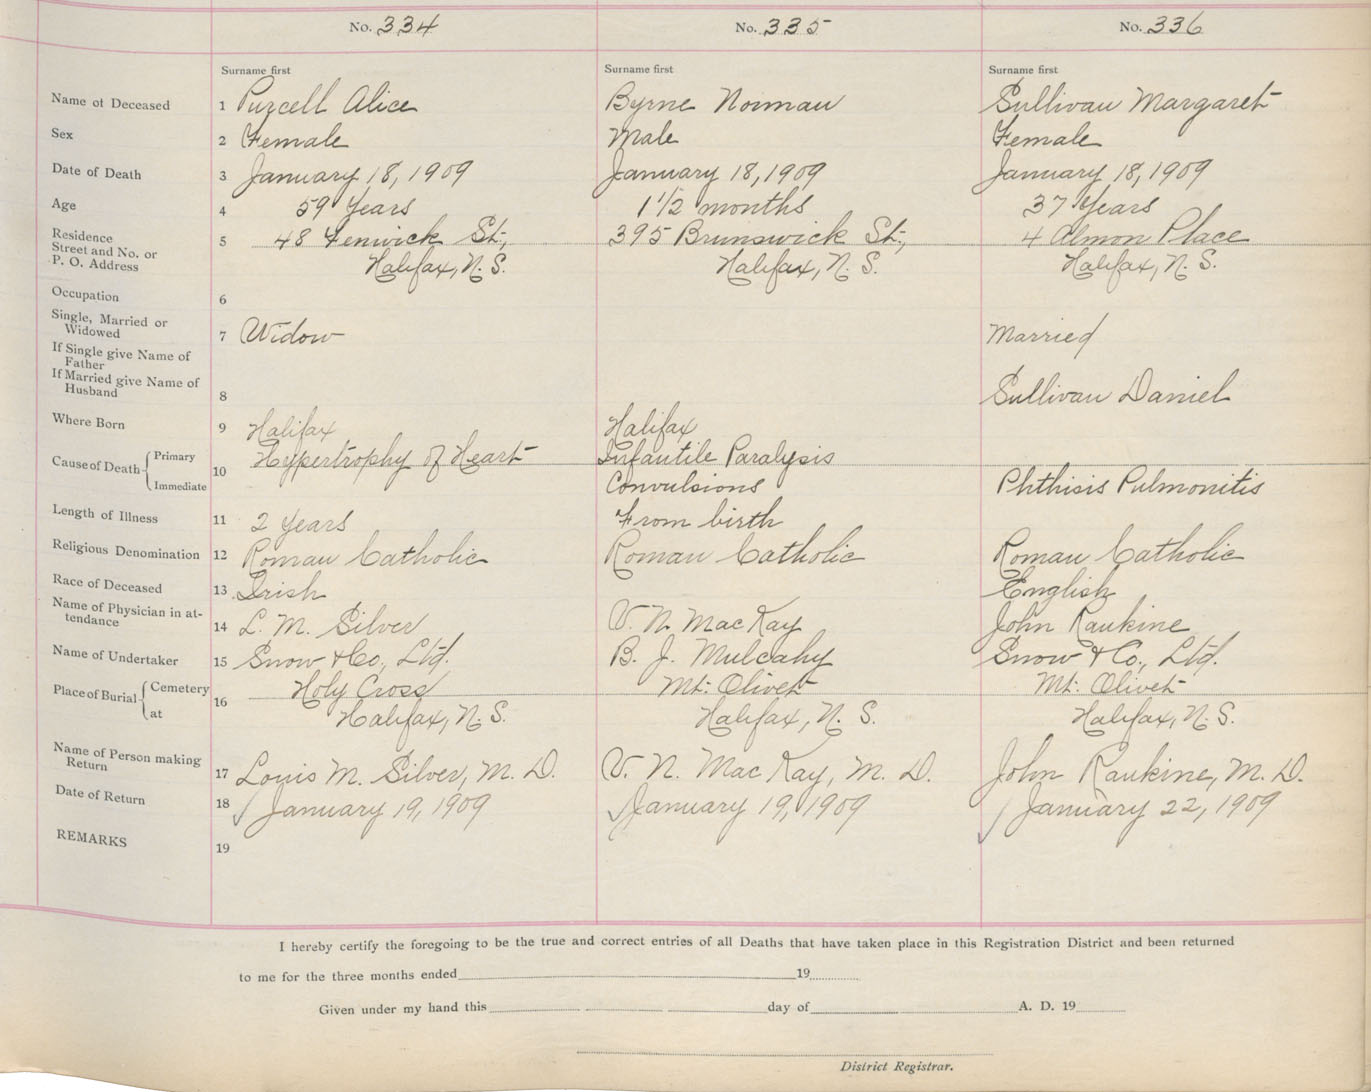 No. 334 No. 335 No. 336
Surname first Surname first Surname first
Name of Deceased 1 Purcell Alice Byrne Norman Sullivan Margaret
Sex 2 Female Male Female
Date of Death 3 January 18, 1909 January 18, 1909 January 18, 1909
Age 4 59 Years 1 1/2 months 37 Years
Residence
Street and No. or 5 48 Fenwick St., 395 Brunswick St., 4 Almon Place
P. O. Address Halifax, N. S. Halifax, N. S. Halifax, N. S.
Occupation 6
Single, Married or
Widowed 7 Widow Married
If Single give Name of
Father
If Married give Name of
Husband 8 Sullivan Daniel
Where Born 9 Halifax Halifax
Cause of Death Primary 10 Hypertrophy of Heart Infantile Paralysis
Immediate Convulsions Phthisis Pulmonitis
Length of Illness 11 2 Years From birth
Religious Denomination 12 Roman Catholic Roman Catholic Roman Catholic
Race of Deceased 13 Irish English
Name of Physician in at-
tendance 14 L. M. Silver V. N. MacKay John Rankine
Name of Undertaker 15 Snow & Co., Ltd. B. J. Mulcahy Snow & Co., Ltd.
Place of Burial Cemetery 16 Holy Cross Mt. Olivet Mt. Olivet
at Halifax, N. S. Halifax, N. S. Halifax, N. S.
Name of Person making
Return 17 Louis M. Silver, M. D. V. N. MacKay, M. D. John Rankine, M. D.
Date of Return 18 January 19, 1909 January 19, 1909 January 22, 1909
REMARKS 19
I hereby certify the foregoing to be the true and correct entries of all Deaths that have taken place in this Registration District and been returned
to me for the three months ended 19
Given under my hand this day of A. D. 19
District Registrar.